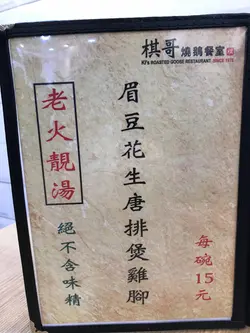 棋哥燒鵝餐室
KI's ROASTED GOOSE RESTAURANT SINCE 1978
老火靚湯
絕不含味精
眉豆花生唐排煲雞腳
每碗15元